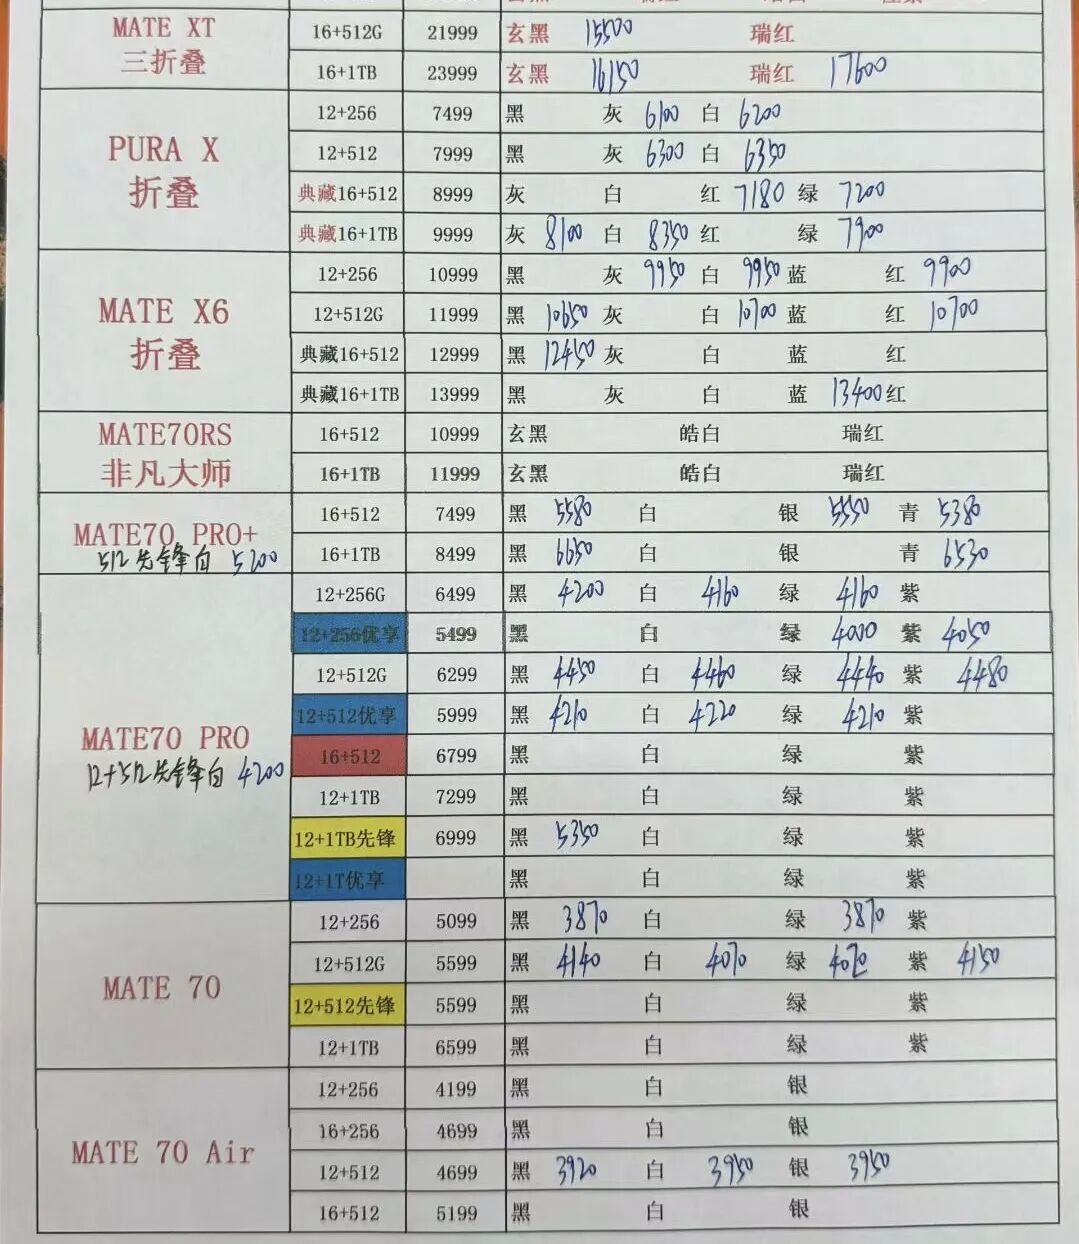 MATE XT
三折叠
16+512G 21999 玄黑 15500 瑞红
16+1TB 23999 玄黑 16150 瑞红 17600
PURA X
折叠
12+256 7499 黑 灰 6100 白 6200
12+512 7999 黑 灰 6300 白 6350
典藏16+512 8999 灰 白 红 7180 绿 7200
典藏16+1TB 9999 灰 8100 白 8350 红 绿 7900
MATE X6
折叠
12+256 10999 黑 灰 9950 白 9950 蓝 红 9900
12+512G 11999 黑 10650 灰 白 10700 蓝 红 10700
典藏16+512 12999 黑 12450 灰 白 蓝 红
典藏16+1TB 13999 黑 灰 白 蓝 13400 红
MATE70RS
非凡大师
16+512 10999 玄黑 皓白 瑞红
16+1TB 11999 玄黑 皓白 瑞红
MATE70 PRO+
512先锋白 5200
16+512 7499 黑 5580 白 银 5550 青 5380
16+1TB 8499 黑 6650 白 银 青 6530
MATE70 PRO
12+512先锋白 4200
12+256G 6499 黑 4200 白 4160 绿 4160 紫
12+256优享 5499 黑 白 绿 4000 紫 4050
12+512G 6299 黑 4450 白 4460 绿 4440 紫 4480
12+512优享 5999 黑 4210 白 4220 绿 4210 紫
16+512 6799 黑 白 绿 紫
12+1TB 7299 黑 白 绿 紫
12+1TB先锋 6999 黑 5350 白 绿 紫
12+1T优享 黑 白 绿 紫
MATE 70
12+256 5099 黑 3870 白 绿 3870 紫
12+512G 5599 黑 4140 白 4070 绿 4070 紫 4150
12+512先锋 5599 黑 白 绿 紫
12+1TB 6599 黑 白 绿 紫
MATE 70 Air
12+256 4199 黑 白 银
16+256 4699 黑 白 银
12+512 4699 黑 3920 白 3950 银 3950
16+512 5199 黑 白 银